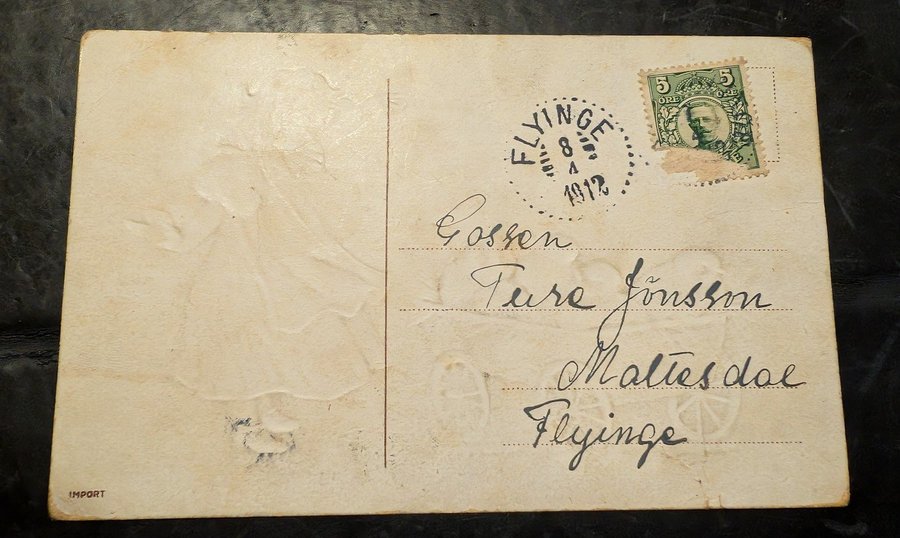 5 5
ÖRE ÖRE
FLYINGE
8
4
1912
Gossen
Ture Jönsson
Maltesdal
Flyinge
IMPORT